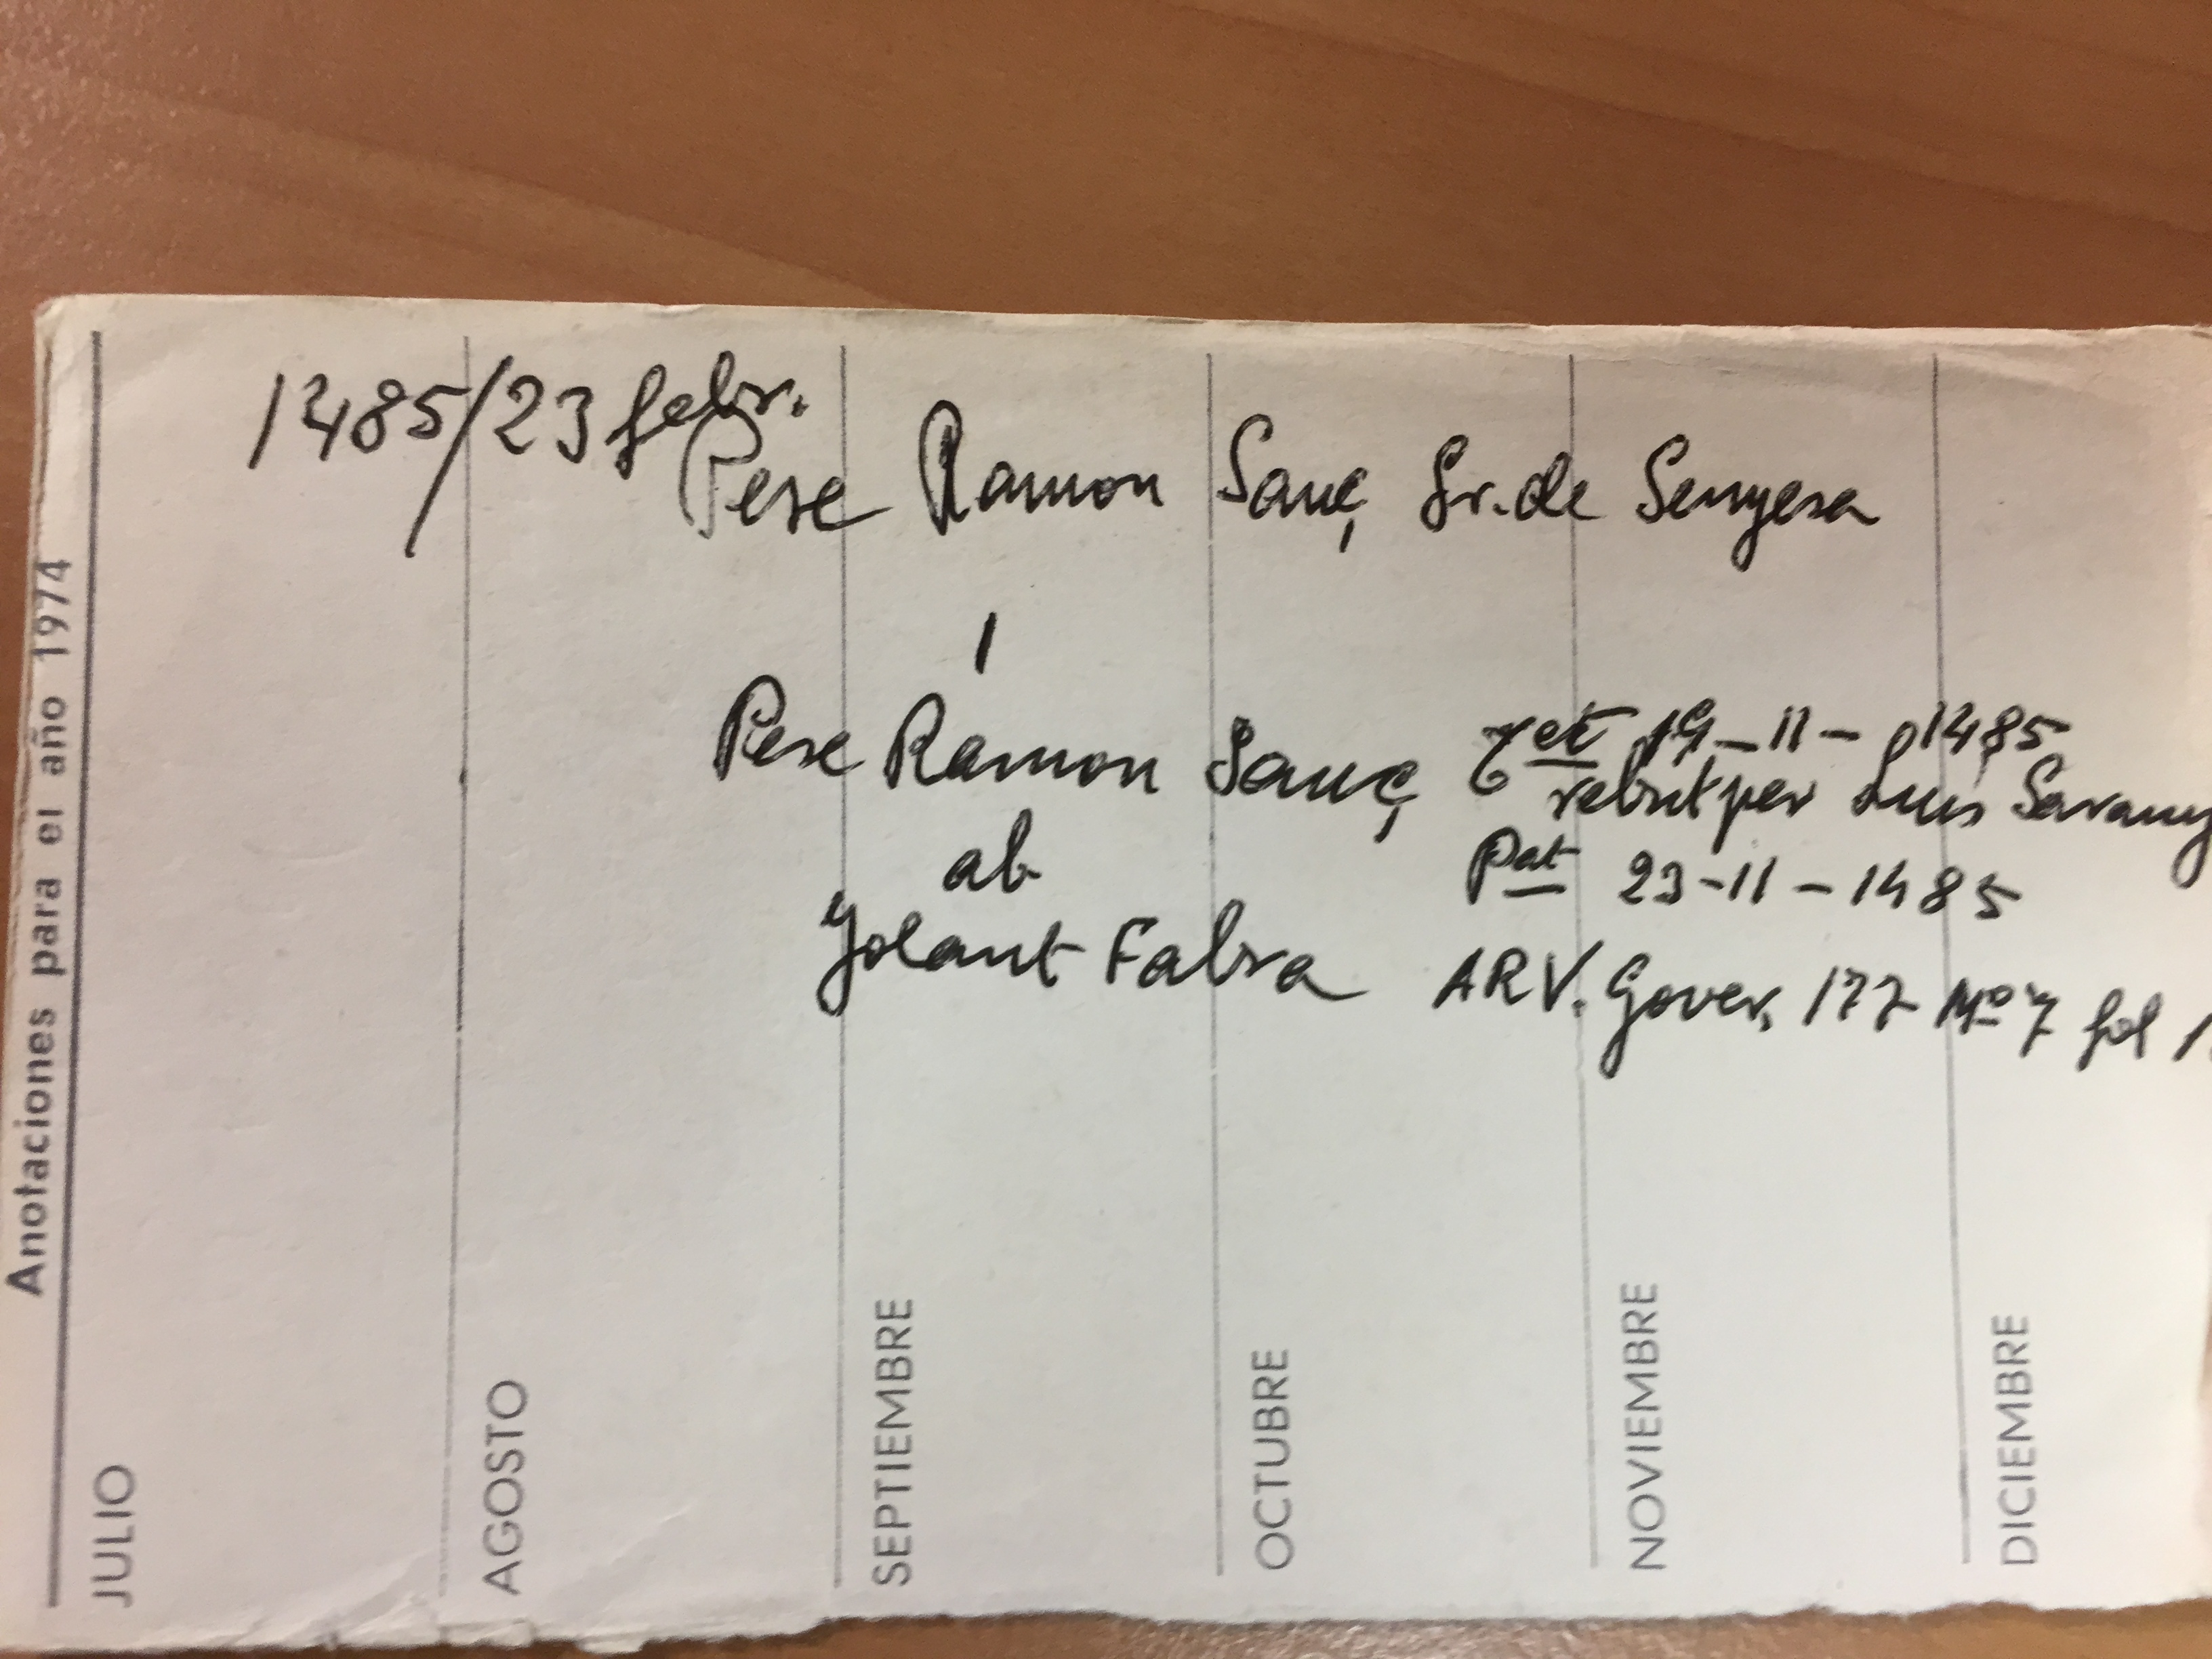 1485/23 febr.
Pere Ramon Sanç Sr. de Senyera
Pere Ramon Sanç
ab
Yolant Fabra
Tet 19-11-1485
rebut per Luis Savany
Pat 23-11-1485
ARV. Gover. 177 Mº 7 fol
Anotaciones para el año 1974
JULIO
AGOSTO
SEPTIEMBRE
OCTUBRE
NOVIEMBRE
DICIEMBRE